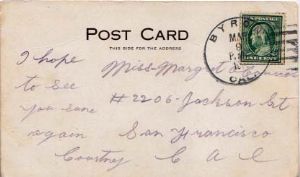 POST CARD
THIS SIDE FOR THE ADDRESS
BYR
CAL
ONE CENT
I hope
to see
you some
again
Courtney
Miss Margret
#2206-Jackson St
San Francisco
CAL